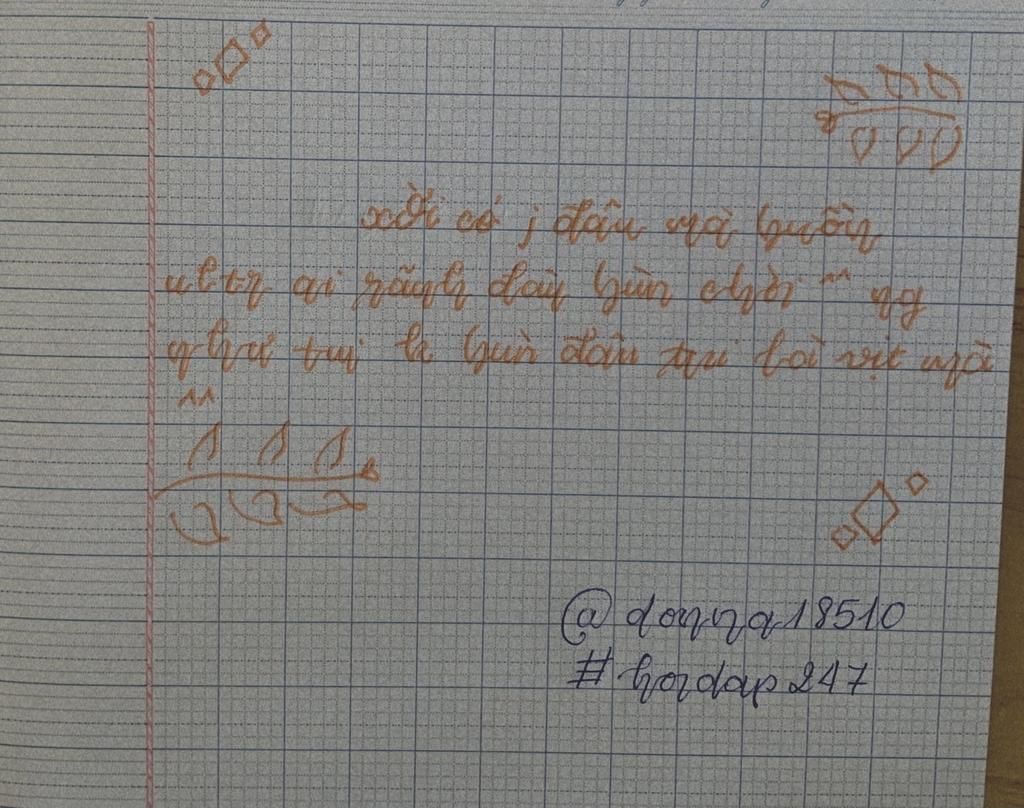 xời có j đâu mà buồn
ai rãnh đâu bùn chời ^^ ng
như tui k bùn đâu tui lai vịt mà
^^
@donna18510
#hoidap247